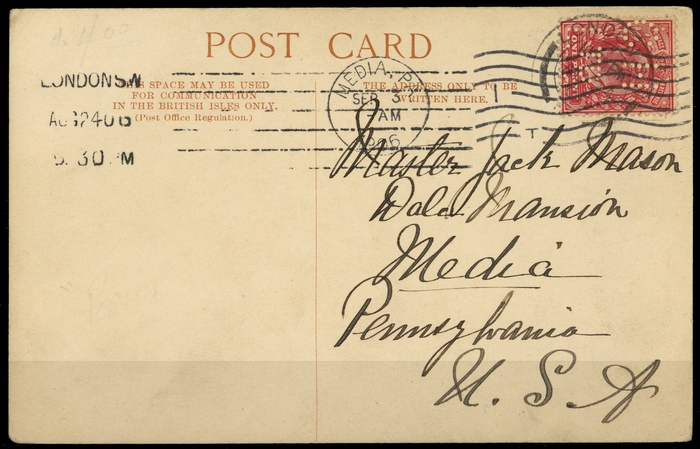 POST CARD
LONDON S.W
AU 24 06
5.30 PM
THIS SPACE MAY BE USED
FOR COMMUNICATION
IN THE BRITISH ISLES ONLY.
(Post Office Regulation.)
THE ADDRESS ONLY TO BE
WRITTEN HERE.
MEDIA, PA
SEP 3
7 AM
1906
LONDON
1
T
Master Jack Mason
Dale Mansion
Media
Pennsylvania
U. S. A